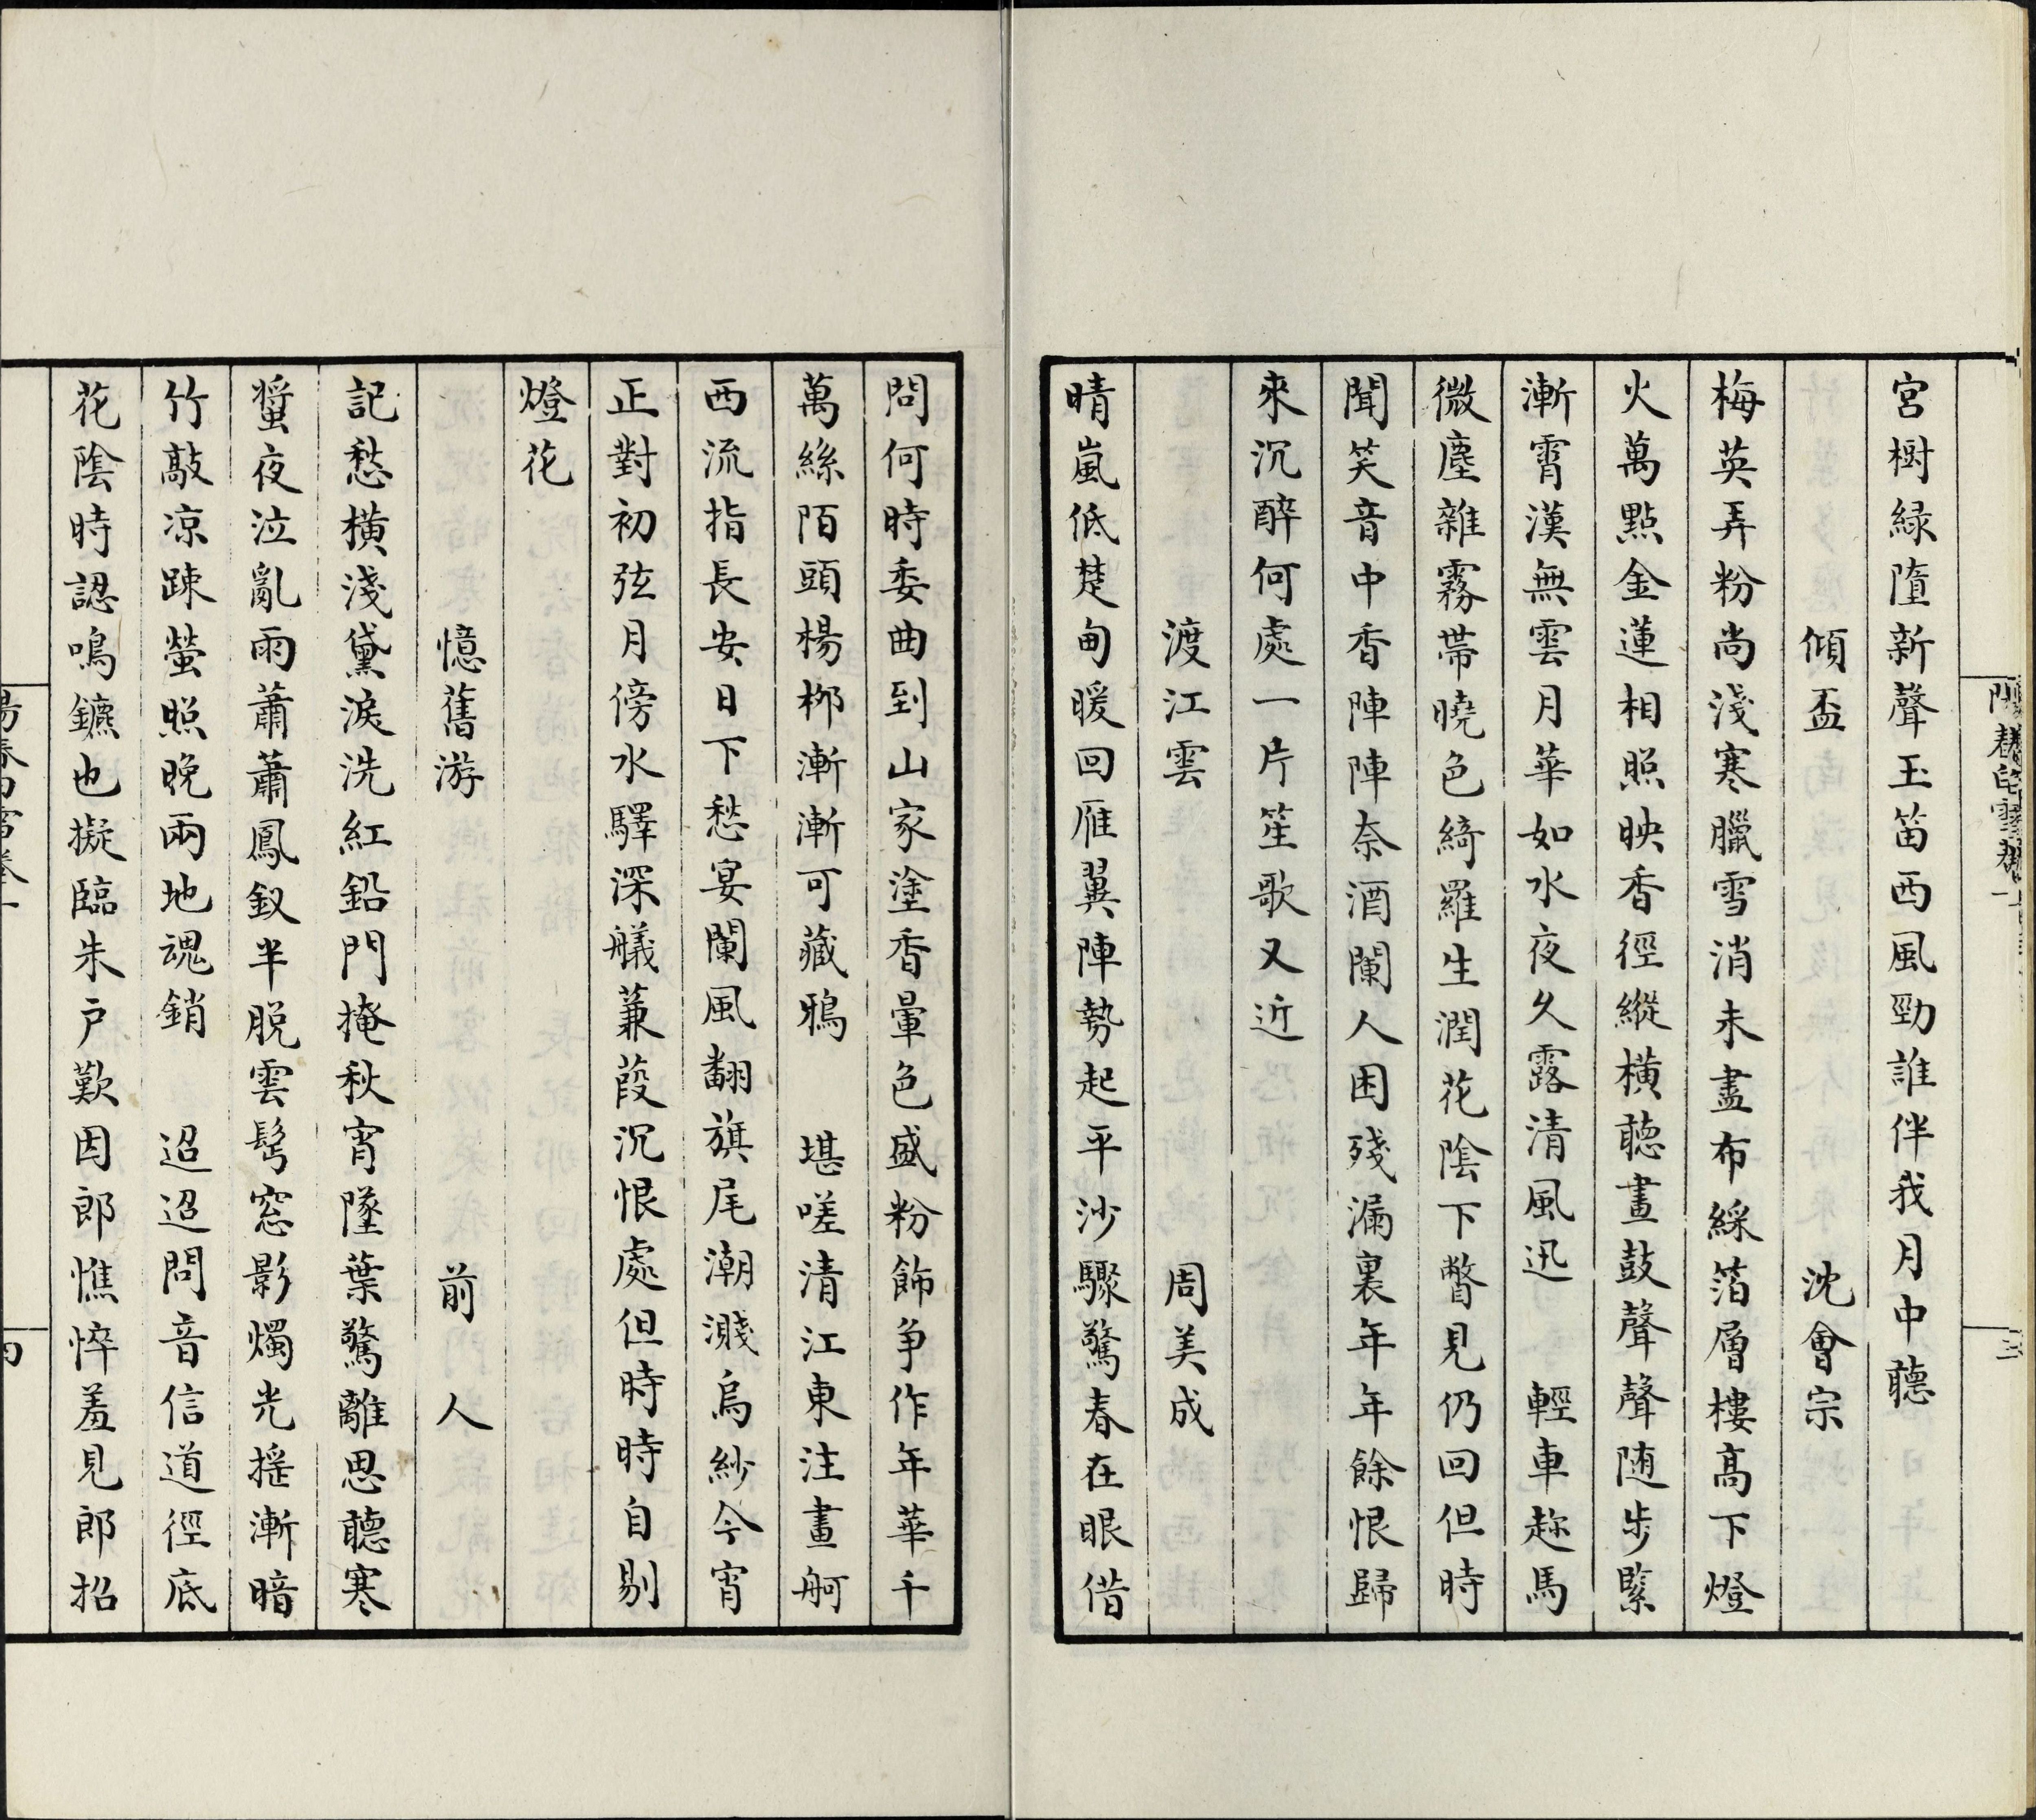 宮樹緑墮新聲玉笛西風勁誰伴我月中聽
傾盃 沈會宗
梅英弄粉尚淺寒臘雪消未盡布綵箔層樓高下燈
火萬點金蓮相照映香徑縱横聽畫鼓聲聲随步緊
漸霄漢無雲月華如水夜久露清風迅 輕車趂馬
微塵雜霧帶曉色綺羅生潤花陰下瞥見仍回但時
聞笑音中香陣陣奈酒闌人困殘漏裏年年餘恨歸
來沉醉何處一片笙歌又近
渡江雲 周美成
晴嵐低楚甸暖回雁翼陣勢起平沙驟驚春在眼借
問何時委曲到山家塗香暈色盛粉飾争作年華千
萬絲陌頭楊栁漸漸可藏鴉 堪嗟清江東注畫舸
西流指長安日下愁宴闌風翻旗尾潮濺烏紗今宵
正對初弦月傍水驛深艤蒹葭沉恨處但時時自剔
燈花
憶舊游 前人
記愁横淺黛淚洗紅鉛門掩秋宵墜葉驚離思聽寒
螿夜泣亂雨蕭蕭鳳釵半脱雲鬢窓影燭光揺漸暗
竹敲凉踈螢照晚兩地魂銷 迢迢問音信道徑底
花陰時認鳴鑣也擬臨朱户歎因郎憔悴羞見郎招